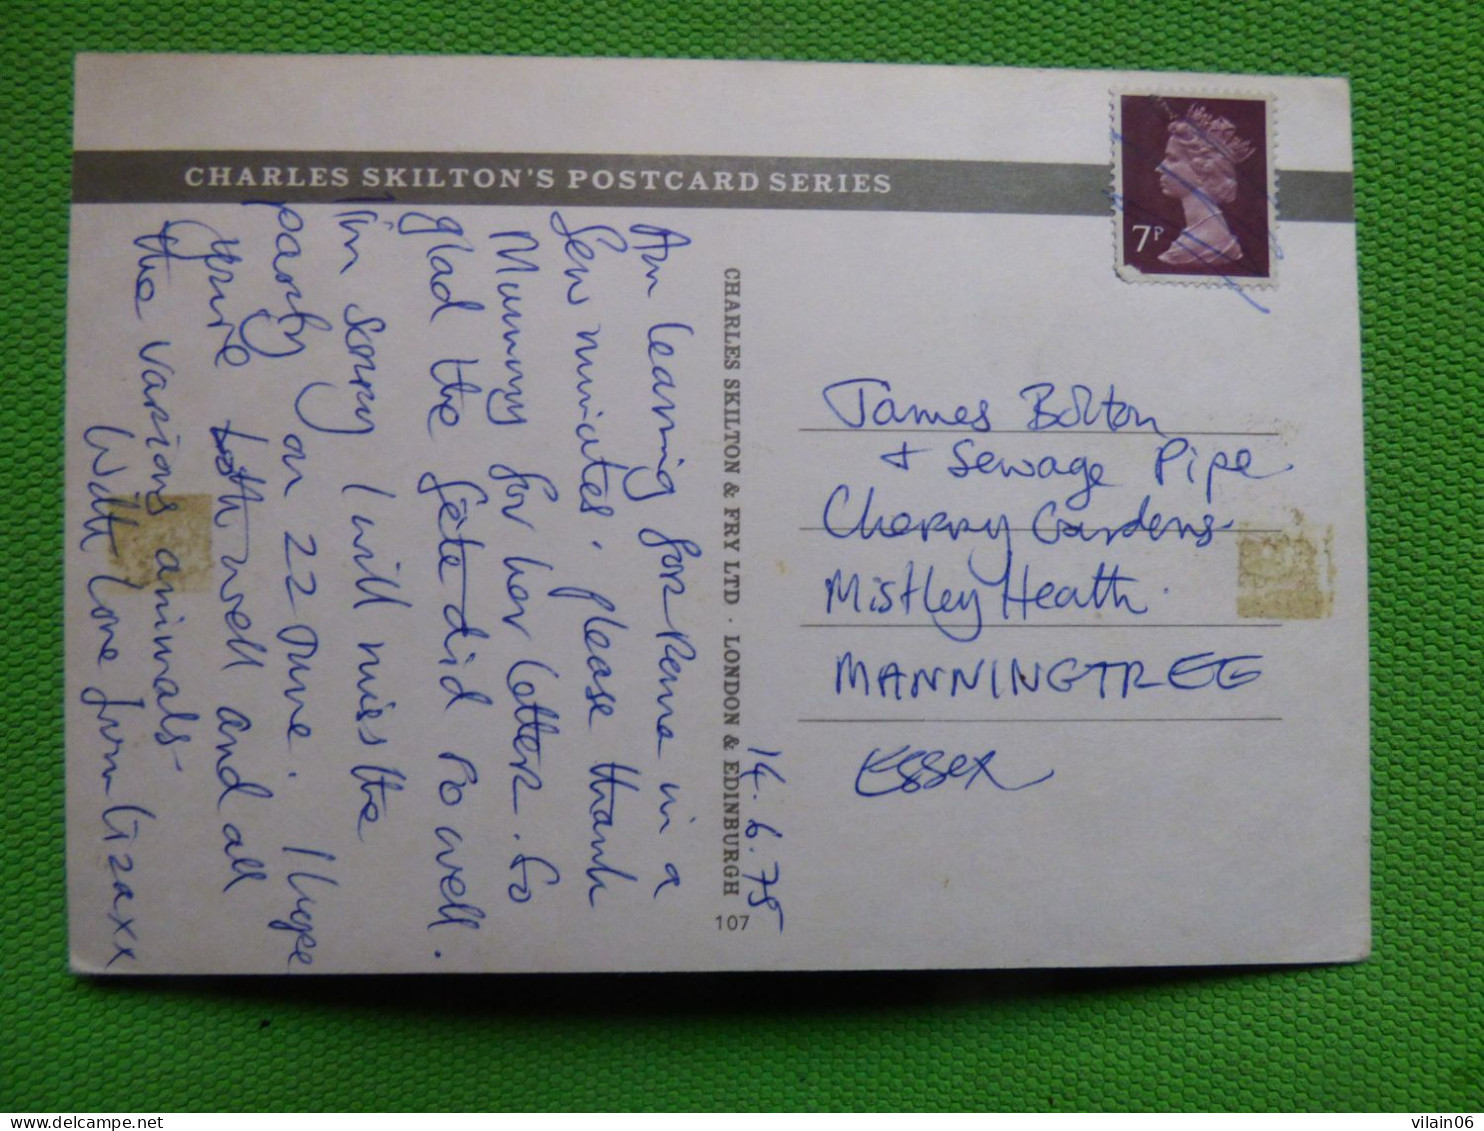 CHARLES SKILTON'S POSTCARD SERIES
7P
Am leaving for Rome in a
few minutes. please thank
Mummy for her letter. So
glad the fête did so well.
I'm sorry I will miss the
party on 22 June. I hope
you're both well and all
the various animals
With love from Liza xx
CHARLES SKILTON & FRY LTD · LONDON & EDINBURGH
107
14.6.75
James Bolton
+ Sewage Pipe
Cherry Gardens
Mistley Heath.
MANNINGTREE
Essex
vilain06